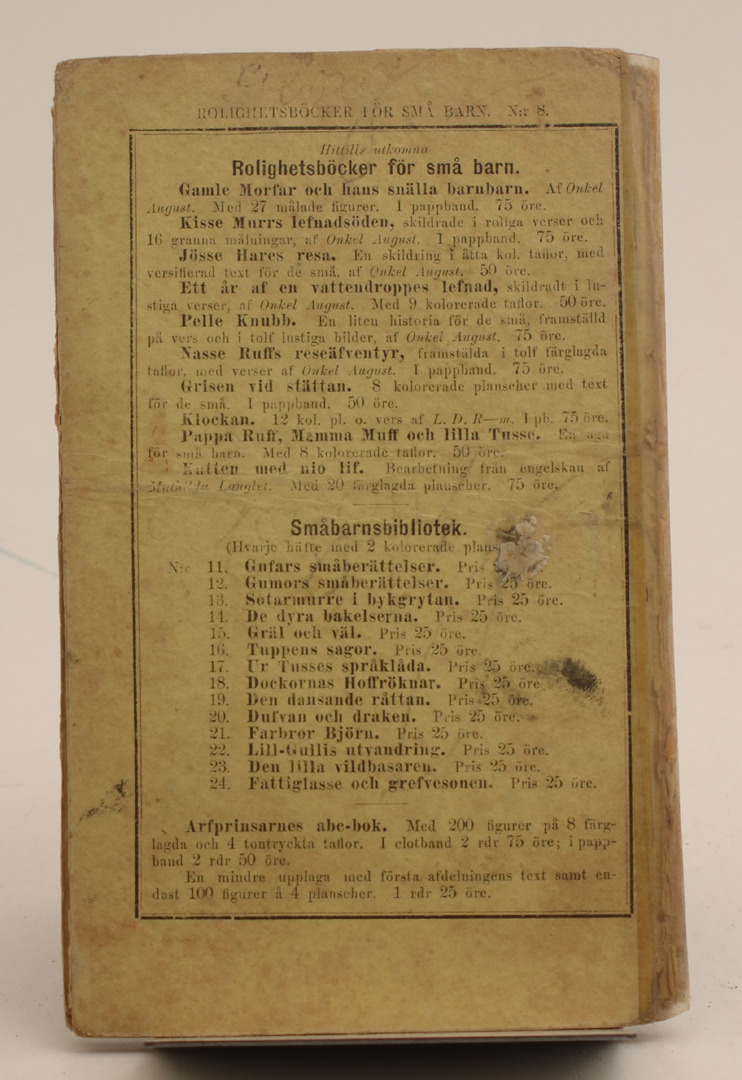 ROLIGHETSBÖCKER FÖR SMÅ BARN. N:r 8.
Hittills utkomna
Rolighetsböcker för små barn.
Gamle Morfar och hans snälla barnbarn. Af Onkel
August. Med 27 målade figurer. I pappband. 75 öre.
Kisse Murrs lefnadsöden, skildrade i roliga verser och
16 granna målningar, af Onkel August. I pappband. 75 öre.
Jösse Hares resa. En skildring i åtta kol. taflor, med
versifierad text för de små, af Onkel August. 50 öre.
Ett år af en vattendroppes lefnad, skildradt i lu-
stiga verser, af Onkel August. Med 9 kolorerade taflor. 50 öre.
Pelle Knubb. En liten historia för de små, framställd
på vers och i tolf lustiga bilder, af Onkel August. 75 öre.
Nasse Ruffs reseäfventyr, framstälda i tolf färglagda
taflor, med verser af Onkel August. I pappband. 75 öre.
Grisen vid stättan. 8 kolorerade planscher med text
för de små. I pappband. 50 öre.
Klockan. 12 kol. pl. o. vers af L. D. R—m. I pb. 75 öre.
Pappa Ruff, Mamma Muff och lilla Tusse. En saga
för små barn. Med 8 kolorerade taflor. 50 öre.
Katten med nio lif. Bearbetning från engelskan af
Mathilda Langlet. Med 20 färglagda planscher. 75 öre.
Småbarnsbibliotek.
(Hvarje häfte med 2 kolorerade plans
N:r 11. Gnfars småberättelser. Pris
12. Gumors småberättelser. Pris 25 öre.
13. Sotarmurre i bykgrytan. Pris 25 öre.
14. De dyra bakelserna. Pris 25 öre.
15. Gräl och väl. Pris 25 öre.
16. Tuppens sagor. Pris 25 öre.
17. Ur Tusses språklåda. Pris 25 öre.
18. Dockornas Hoffröknar. Pris 25 öre
19. Den dansande råttan. Pris 25 öre.
20. Dufvan och draken. Pris 25 öre.
21. Farbror Björn. Pris 25 öre.
22. Lill-Gullis utvandring. Pris 25 öre.
23. Den lilla vildbasaren. Pris 25 öre.
24. Fattiglasse och grefvesonen. Pris 25 öre.
Arfprinsarnes abc-bok. Med 200 figurer på 8 färg-
lagda och 4 tontryckta taflor. I clotband 2 rdr 75 öre; i papp-
band 2 rdr 50 öre.
En mindre upplaga med första afdelningens text samt en-
dast 100 figurer å 4 planscher. 1 rdr 25 öre.